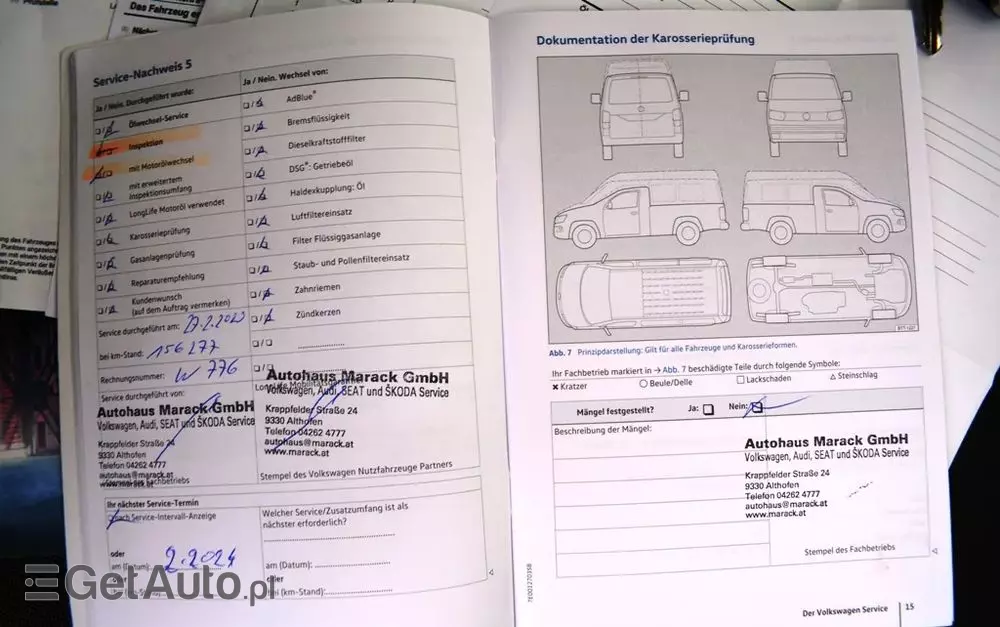 Das Fahrzeug
Service-Nachweis 5
Ja / Nein. Durchgeführt wurde:
Ja / Nein. Wechsel von:
Ölwechsel-Service
Inspektion
mit Motorölwechsel
mit erweitertem
Inspektionsumfang
LongLife Motoröl verwendet
Karosserieprüfung
Gasanlagenprüfung
Reparaturempfehlung
Kundenwunsch
(auf dem Auftrag vermerken)
AdBlue®
Bremsflüssigkeit
Dieselkraftstofffilter
DSG®: Getriebeöl
Haldexkupplung: Öl
Luftfiltereinsatz
Filter Flüssiggasanlage
Staub- und Pollenfiltereinsatz
Zahnriemen
Zündkerzen
Service durchgeführt am:
bei km-Stand: 156177
Rechnungsnummer: W 776
Service durchgeführt von:
Autohaus Marack GmbH
Volkswagen, Audi, SEAT und ŠKODA Service
Krappfelder Straße 24
9330 Althofen
Telefon 04262 4777
autohaus@marack.at
www.marack.at
Autohaus Marack GmbH
Volkswagen, Audi, SEAT und ŠKODA Service
Krappfelder Straße 24
9330 Althofen
Telefon 04262 4777
autohaus@marack.at
www.marack.at
Stempel des Volkswagen Nutzfahrzeuge Partners
Ihr nächster Service-Termin
nach Service-Intervall-Anzeige
oder
am (Datum): 2.2024
Welcher Service/Zusatzumfang ist als
nächster erforderlich?
am (Datum):
oder
bei (km-Stand):
Dokumentation der Karosserieprüfung
Abb. 7 Prinzipdarstellung: Gilt für alle Fahrzeuge und Karosserieformen.
Ihr Fachbetrieb markiert in → Abb. 7 beschädigte Teile durch folgende Symbole:
✕ Kratzer
○ Beule/Delle
□ Lackschaden
△ Steinschlag
Mängel festgestellt?
Ja:
Nein:
Beschreibung der Mängel:
Autohaus Marack GmbH
Volkswagen, Audi, SEAT und ŠKODA Service
Krappfelder Straße 24
9330 Althofen
Telefon 04262 4777
autohaus@marack.at
www.marack.at
Stempel des Fachbetriebs
Der Volkswagen Service
15
GetAuto.pl